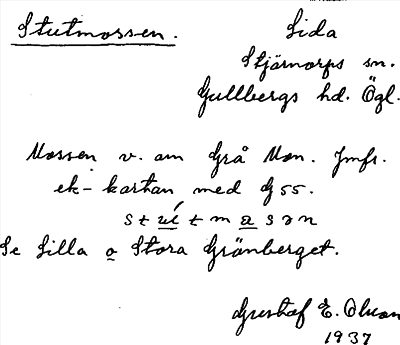 Stutmossen.
Sida
Stjärnorps sn.
Gullbergs hd. Ögl.
Mossen v. om Grå Mon. Jmfr.
ek-kartan med G 55.
stútmasən
Se Lilla o Stora Gränberget.
Gustaf E. Olson
1937